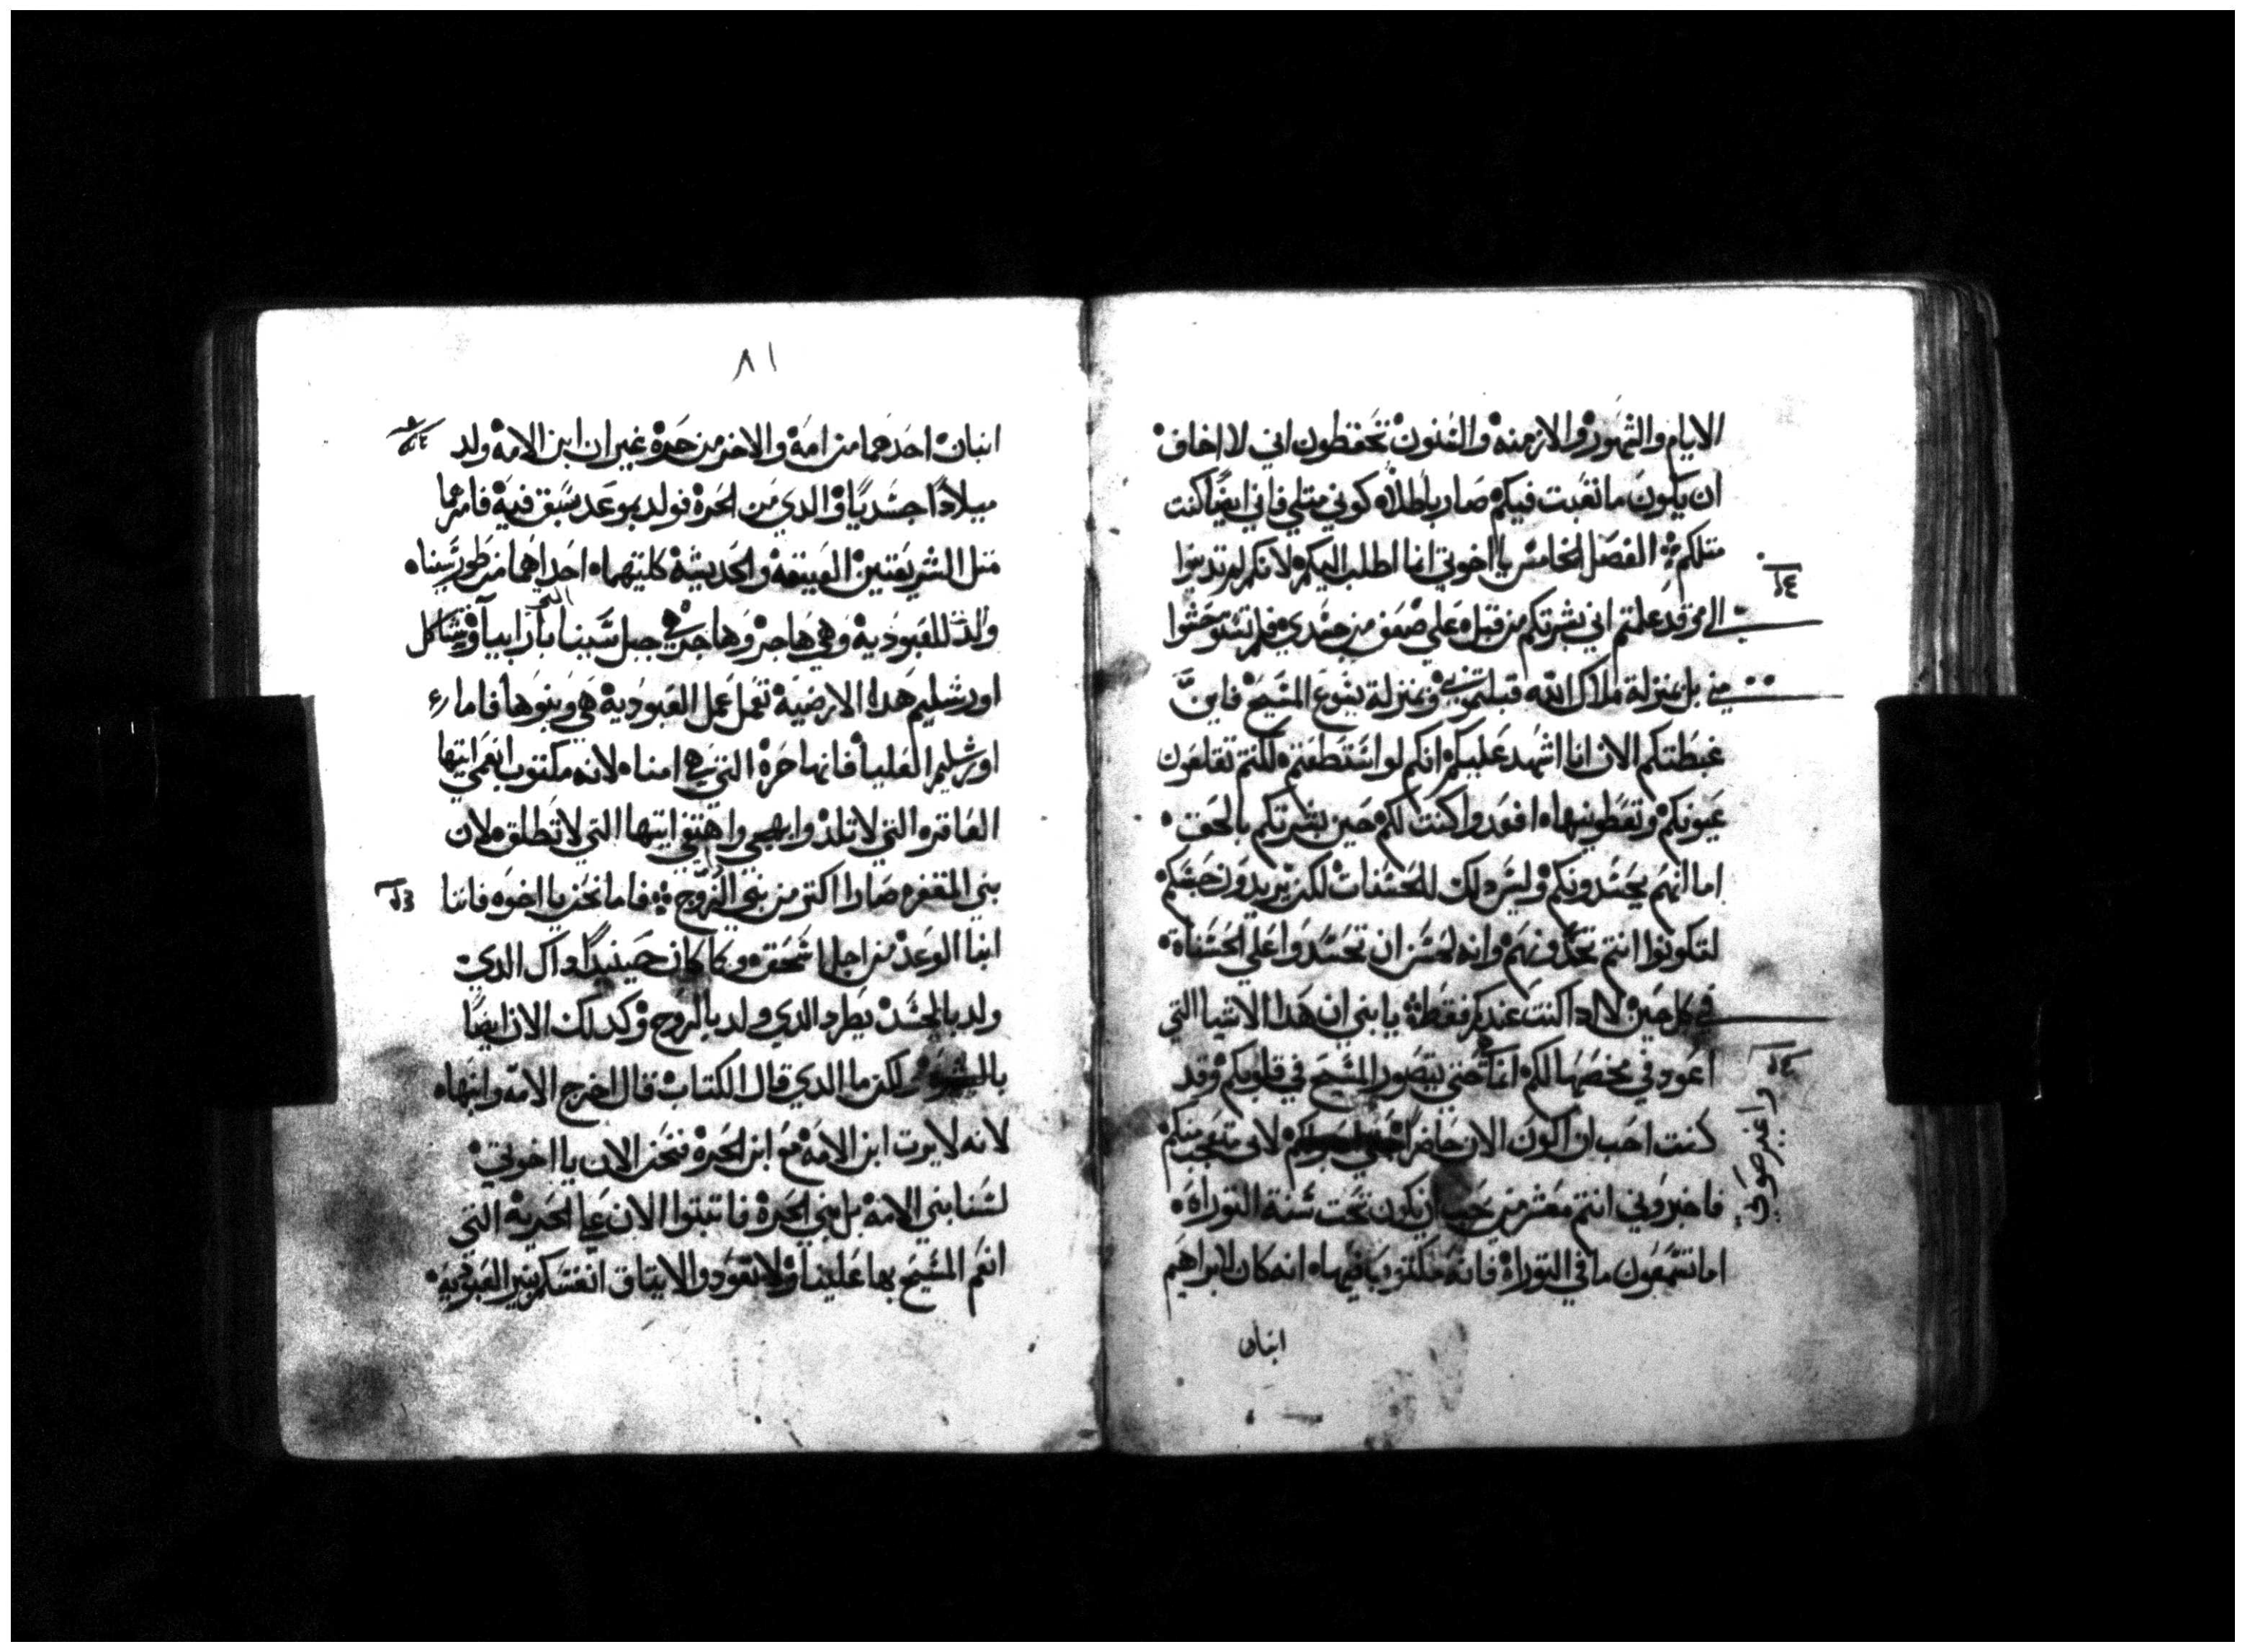 الايام والشهور والازمنه والسنون تحفظون اني لا اخاف
ان يكون ما تعبت فيكم صار باطلاه كوني مثلي فاني ايضًا كنت
مثلكم الفصل الخامس يا اخوتي انما اطلب اليكم لانكم لم تدنبوا
الي وقد علمتم اني بشرتكم من قبل علي ضعف من جسدي فلم تستوحشوا
مني بل بمنزلة ملاك الله قبلتموني وبمنزلة يسوع المسيح فاين
غبطتكم الان انا اشهد عليكم انكم لو استطعتم لكنتم تقلعون
عيونكم وتعطونيهاه افعدوا كنت لكم حين بشرتكم بالحق
اما انهم يحسدونكم وليس دلك للحسنات لكن يريدون حبسكم
لتكونوا انتم تحسدونهم وانه لحسن ان تحسدوا علي الحسناة
في كل حين لا ادا كنت عندكم فقط يا بني ان هدا الاشيا التي
اعود في مخضها لكم انما حتي يتصور المسيح في قلوبكم وقد
كنت احب ان اكون الان حاضرًا لاني متعجب منكم
واغير صوتي
فاخبروني انتم معشر من حب ان يكون تحت سنة التوراه
اما تسمعون ما في التوراة فانه مكتوب فيهاه انه كان لابراهيم
ابنان
٨١
ابنان احدهما من امة والاخر من حرة غير ان ابن الامة ولد
ميلادًا جسديًا والدي من الحرة فولد بموعد سبق فيه فامرهما
مثل الشريعتين العتيقة والحديثة كلتيهماه احداهما من طور سيناه
ولدت للعبودية وهي هاجر وهاجر هي جبل سينا بارابيا وتشاكل
اورشليم هدا الارضية تعمل عمل العبودية هي وبنوها فاما
اورشليم العليا فانها حرة التي هي امناه لانه مكتوب انعمي ايتها
العاقره التي لا تلد وابهجي واهتفي ايتها التي لا تطلق لان
بني المقفره صارا اكثر من بني الزوج فاما نحن يا اخوه فاننا
ابنا الوعد من اجل اسحق وكما كان حينيدًا داك الدي
ولد بالجسد يطرد الدي ولد بالروح وكدلك الان ايضًا
لكن ما الدي قال الكتاب قال اخرج الامة وابنهاه
لانه لا يرت ابن الامة مع ابن الحرة فنحن الان يا اخوتي
لسنا بني الامة بل بني الحرة فاتبتوا الان علي الحرية التي
انعم المسيح بها علينا ولا تعودوا الايتاق انفسكم بنير العبودية